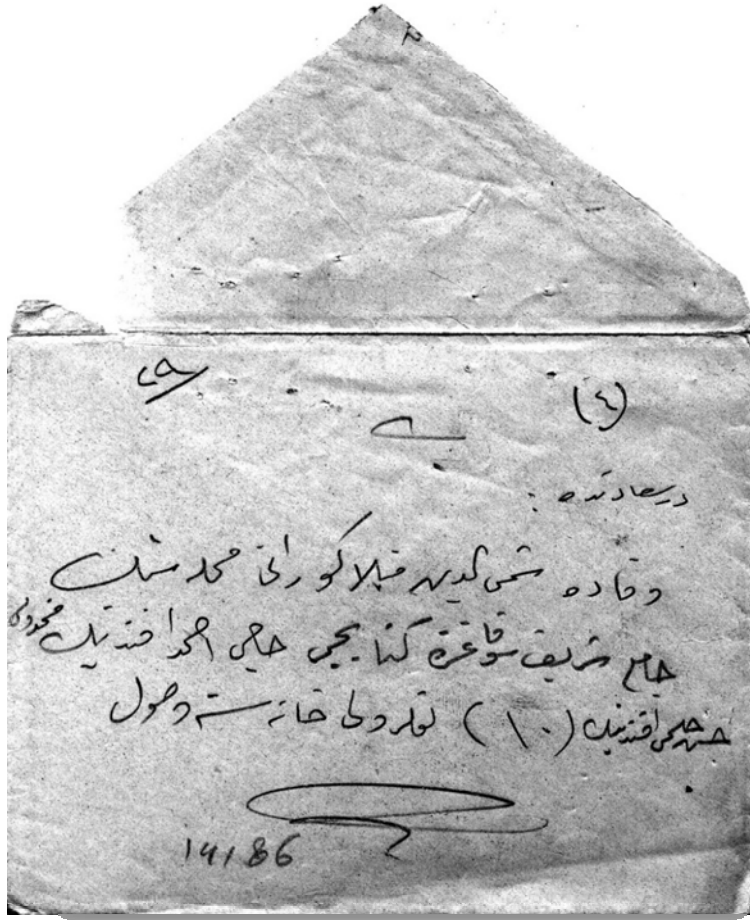 (٤) ٢٩
در سعادتده :
وفاده شمس الدین منلا كورانی محله سنك
جامع شریف سوقاغنده كتابجی حاجی احمد افندینك مخدومی
حسن حلمی افندینك (١٠) نومرولی خانه سنه وصول
14186